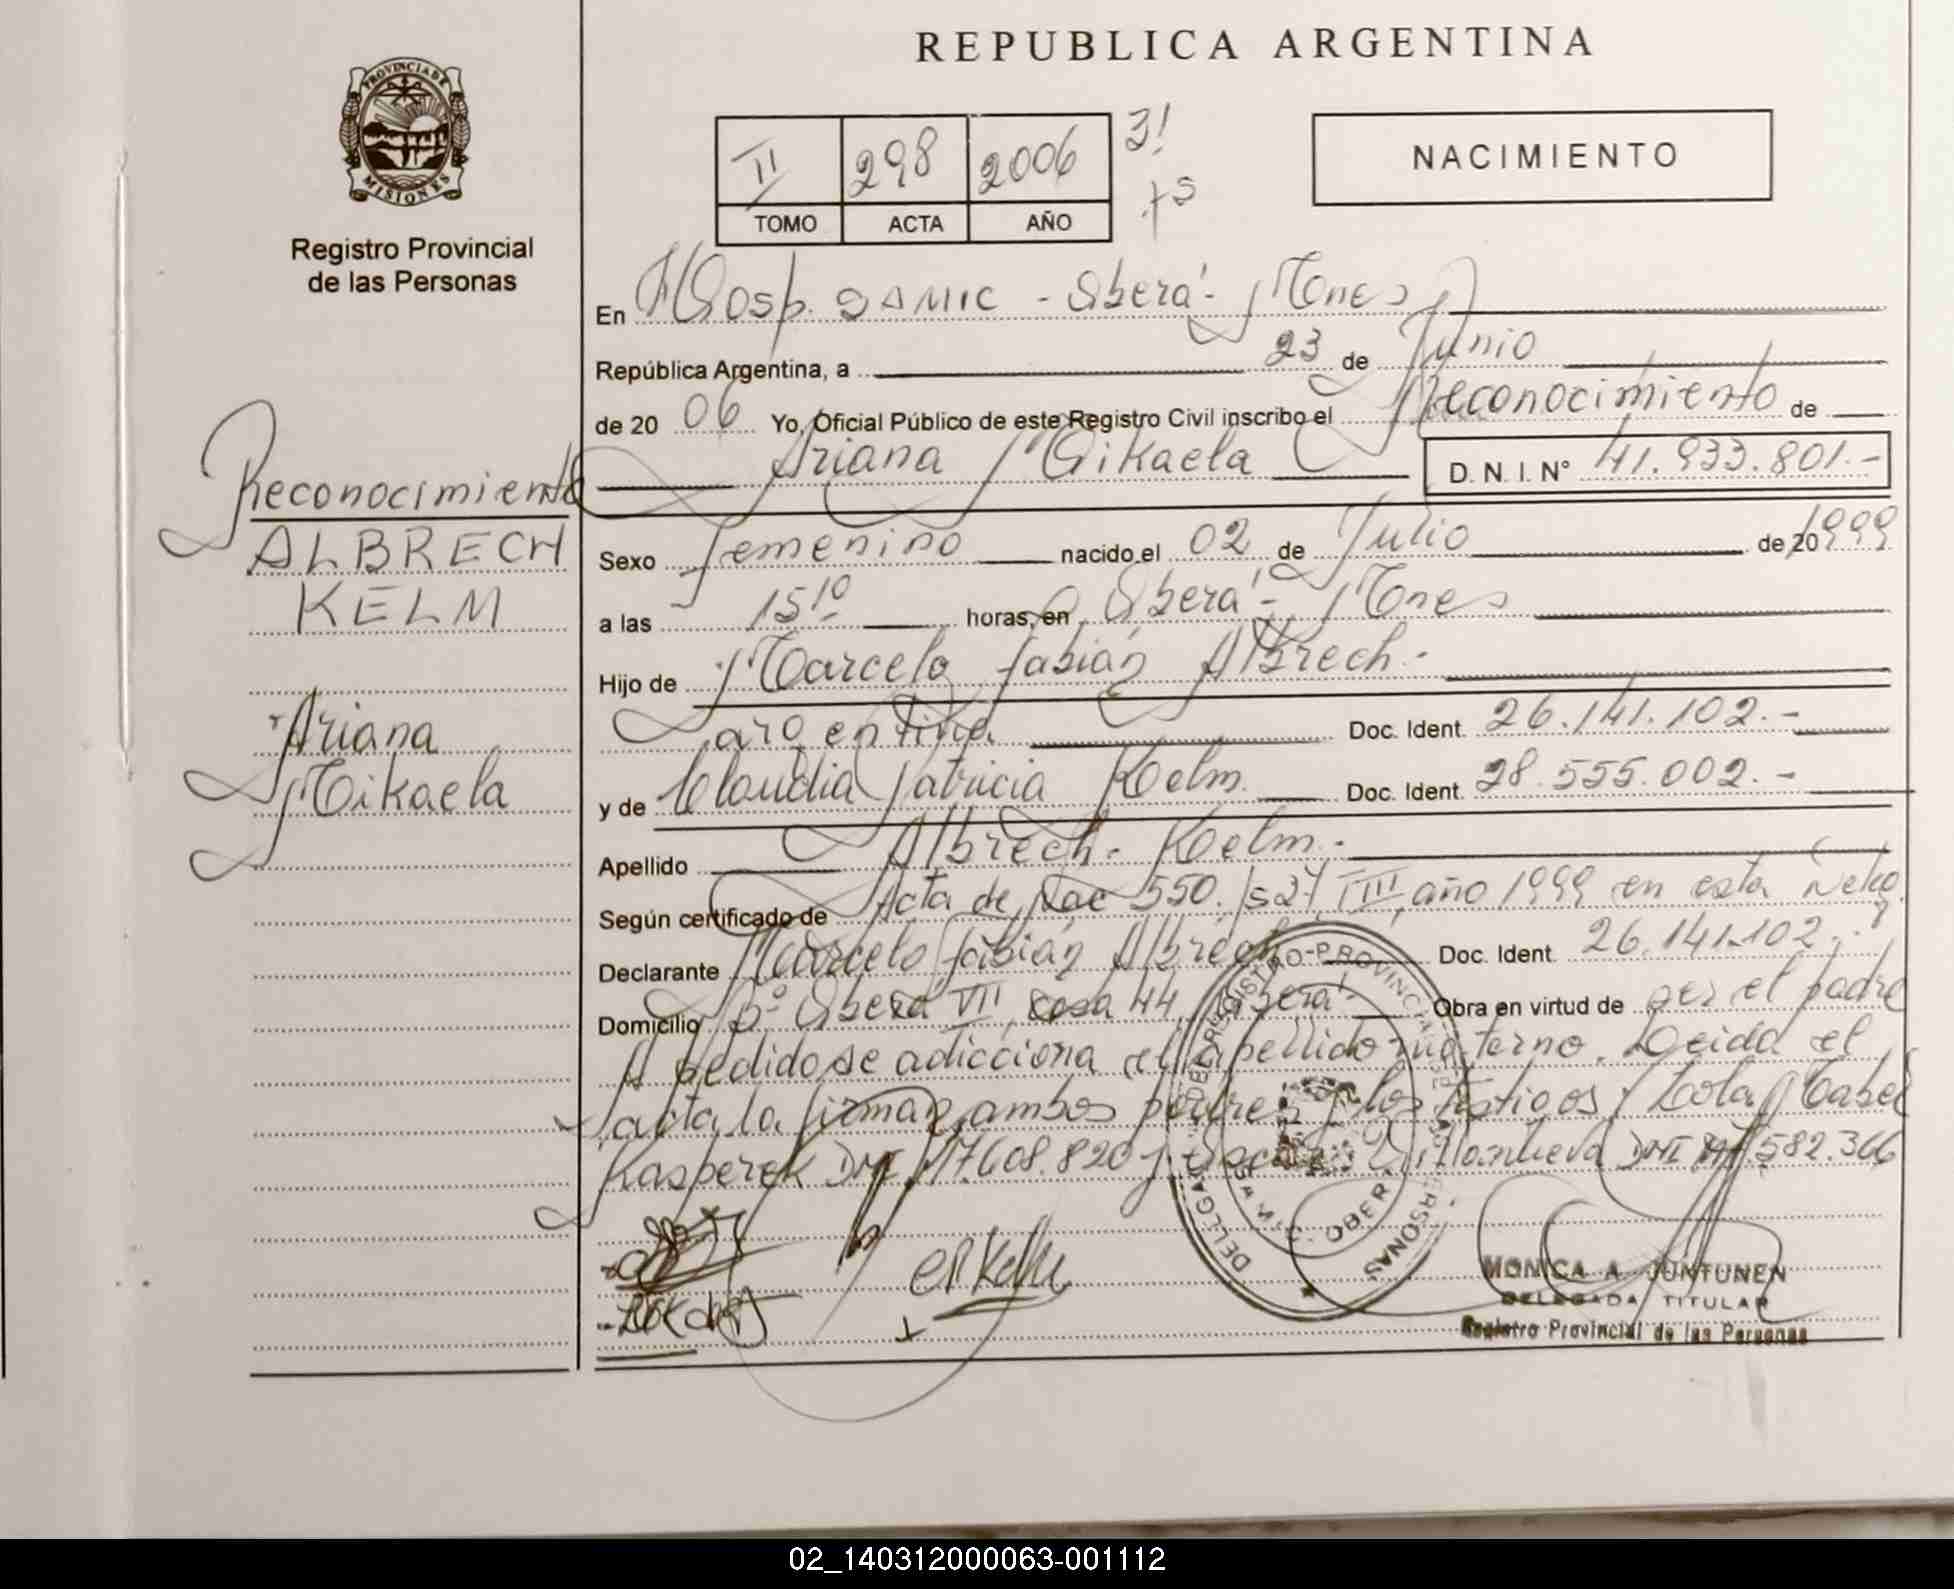 REPUBLICA ARGENTINA
PROVINCIA DE
MISIONES
Registro Provincial
de las Personas
II 298 2006
TOMO ACTA AÑO
NACIMIENTO
En Hosp. SAMIC - Oberá - Mnes
República Argentina, a 23 de Junio
de 20 06 Yo, Oficial Público de este Registro Civil inscribo el Reconocimiento de
Ariana Mikaela D. N. I. N° 41.933.801.-
Sexo femenino nacido el 02 de Julio de 20 1999
a las 15 10 horas, en Oberá - Mnes
Hijo de Marcelo Fabián Albrech.-
argentina Doc. Ident. 26.141.102.-
y de Claudia Patricia Kelm. Doc. Ident. 28.555.002.-
Apellido Albrech - Kelm.-
Según certificado de Acta de Nac 550. TIII año 1999 en esta
Declarante Marcelo Fabián Albrech Doc. Ident. 26.141.102.-
Domicilio B° Oberá VII casa 44, Oberá Obra en virtud de ser el padre
A pedido se adicciona el apellido materno. Leida el
acta la firman ambos padres y los testigos
Kasperek DNI 17.608.820 y Villanueva DNI 582.366
Reconocimiento
ALBRECH
KELM
Ariana
Mikaela
MONICA A. JUNTUNEN
DELEGADA TITULAR
Registro Provincial de las Personas
02_140312000063-001112